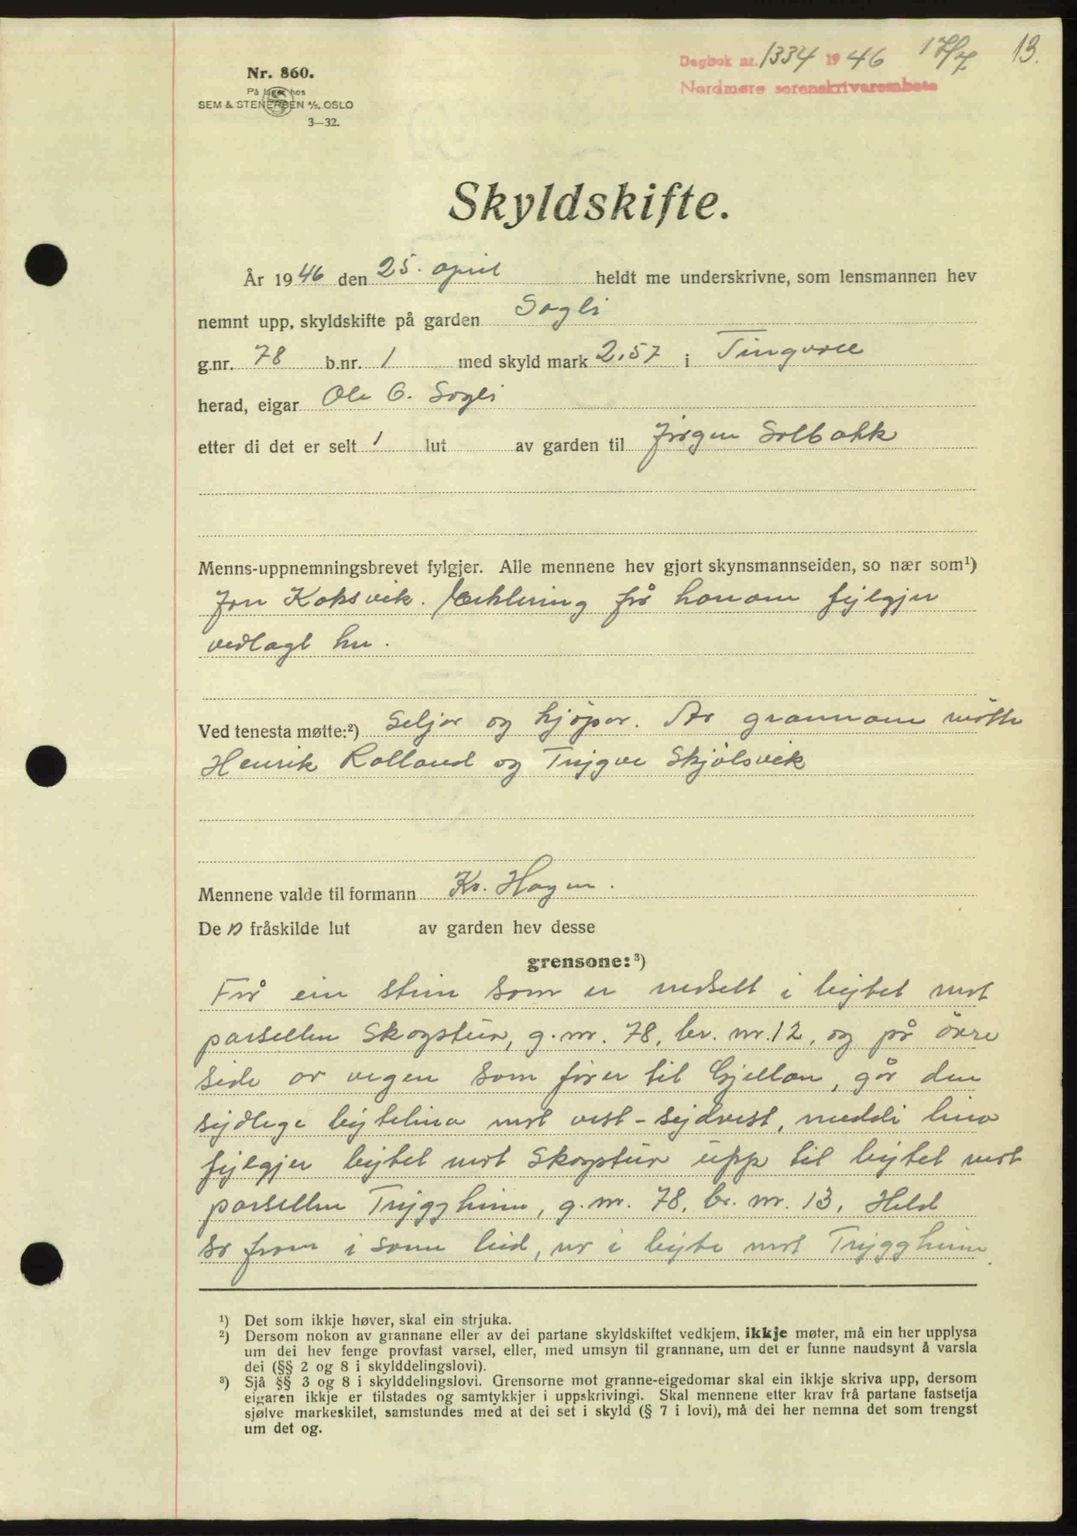 Nr. 860.
På lager hos
SEM & STENERSEN A/S. OSLO
3—32.
Dagbok nr. 1334 1946 17/7 13.
Nordmøre sorenskrivarembete
Skyldskifte.
År 1946 den 25. april heldt me underskrivne, som lensmannen hev
nemnt upp, skyldskifte på garden Sogli
g.nr. 78 b.nr. 1 med skyld mark 2,57 i Tingvoll
herad, eigar Ole O. Sogli
etter di det er selt 1 lut av garden til Jörgen Solbakk
Menns-uppnemningsbrevet fylgjer. Alle mennene hev gjort skynsmannseiden, so nær som¹)
Jon Koksvik. Erklæring frå honom fylgjer
vedlagt her.
Ved tenesta møtte:²) Seljar og kjöpar. Av grannam mötte
Henrik Rolland og Trygve Skjölsvik
Mennene valde til formann Kr. Hagen.
De n fråskilde lut av garden hev desse
grensone:³)
Frå ein stein som er nedsett i bytet mot
parsellen Skogstun, g.nr. 78, br. nr. 12, og på övre
side av vegen som förer til Gjellan, går den
sydlege bytelina mot vest-sydvest, meddi lina
fylgjer bytet mot Skogstun upp til bytet mot
parsellen Tryggheim, g.nr. 78, br. nr. 13. Held
so fram i same leid, no i byte mot Tryggheim
¹) Det som ikkje høver, skal ein strjuka.
²) Dersom nokon av grannane eller av dei partane skyldskiftet vedkjem, ikkje møter, må ein her upplysa
um dei hev fenge provfast varsel, eller, med umsyn til grannane, um det er funne naudsynt å varsla
dei (§§ 2 og 8 i skylddelingslovi).
³) Sjå §§ 3 og 8 i skylddelingslovi. Grensorne mot granne-eigedomar skal ein ikkje skriva upp, dersom
eigaren ikkje er tilstades og samtykkjer i uppskrivingi. Skal mennene etter krav frå partane fastsetja
sjølve markeskilet, samstundes med at dei set i skyld (§ 7 i lovi), må dei her nemna det som trengst
um det og.